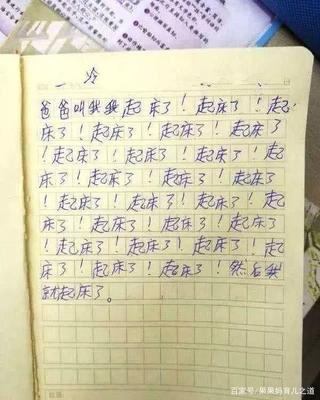 爸爸叫我我起床了！起床了！起
床了！起床了！起床了！起床了
！起床了！起床了！起床了！起
床了！起床了！起床了！起床了
！起床了！起床了！起床了！起
床了！起床了！起床了！起床了
！起床了！起床了！起床了！起
床了！起床了！起床了！然后我
就起床了。
百家号/果果妈育儿之道